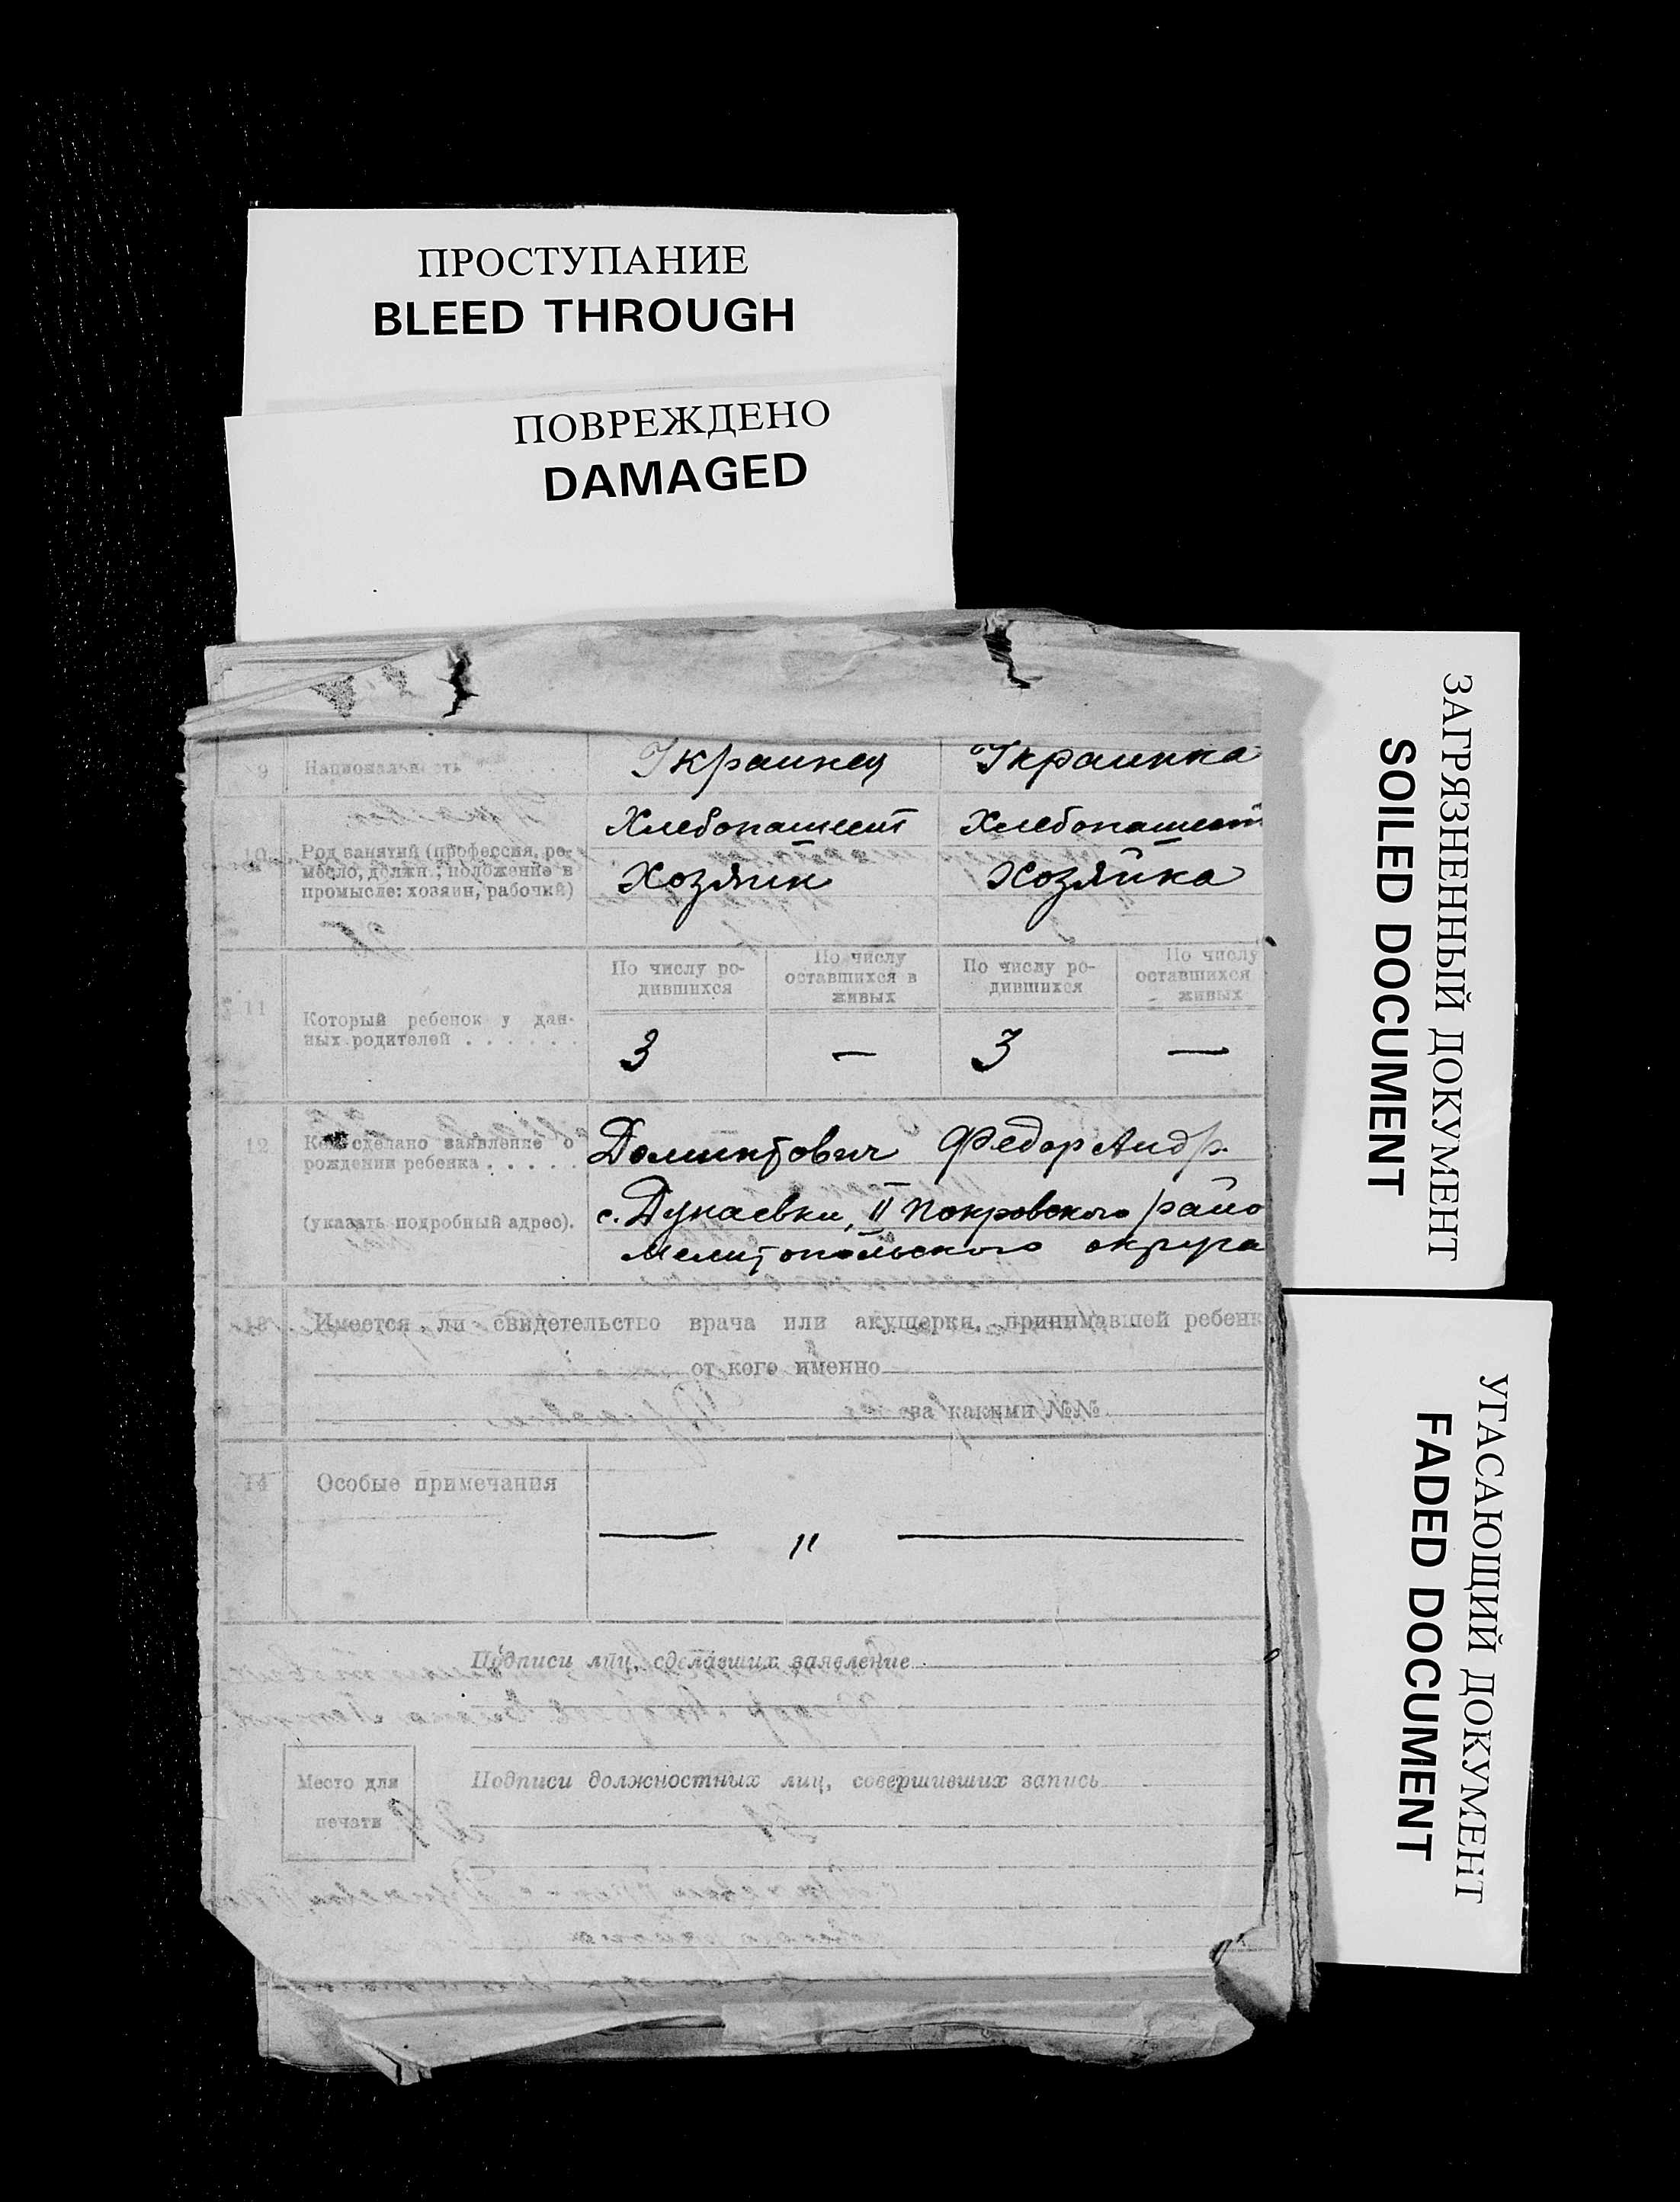 ПРОСТУПАНИЕ
BLEED THROUGH
ПОВРЕЖДЕНО
DAMAGED
ЗАГРЯЗНЕННЫЙ ДОКУМЕНТ
SOILED DOCUMENT
УГАСАЮЩИЙ ДОКУМЕНТ
FADED DOCUMENT
9 Национальность Украинец Украинка
Хлебопашест Хлебопашест
10 Род занятий (профессия, ре-
месло, должн.; положение в
промысле: хозяин, рабочий)
Хозяин Хозяйка
По числу ро-
дившихся
По числу
оставшихся в
живых
По числу ро-
дившихся
По числу
оставшихся
живых
11 Который ребенок у дан-
ных родителей . . . . . .
3 — 3 —
12 Кем сделано заявление о
рождении ребенка . . . . .
(указать подробный адрес).
Федор Андр.
с. Дунаевки, II Покровского райо
Мелитопольского округа
13 Имеется ли свидетельство врача или акушерки, принимавшей ребенк
от кого именно
за какими №№
14 Особые примечания
— " —
Подписи лиц, сделавших заявление
Место для
печати
Подписи должностных лиц, совершивших запись